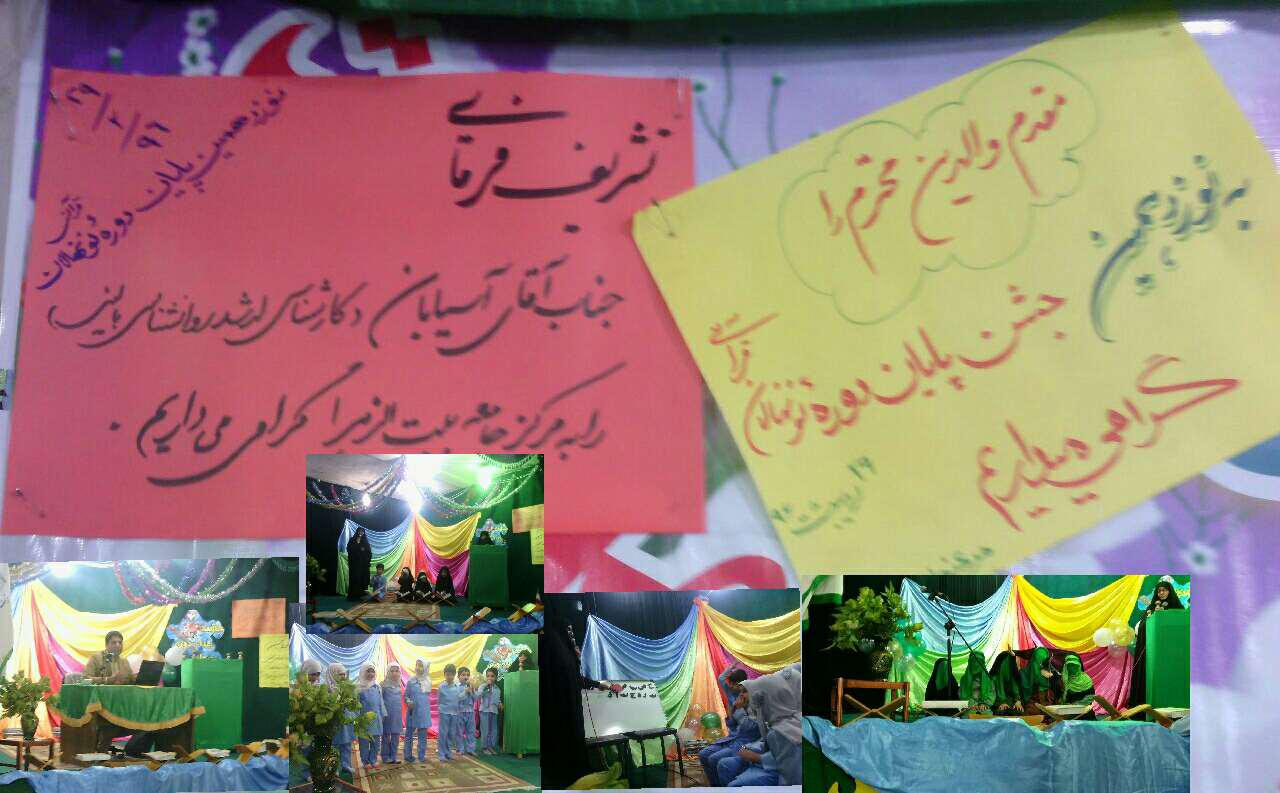 مقدم والدین محترم را
به نوزدهمین
جشن پایان دوره نونهالان
قرآنی
گرامی می‌داریم
۲۹ اردیبهشت ۹۶
تشریف فرمائی
جناب آقای آسیابان (کارشناس ارشد روانشناسی بالینی)
را به مرکز جامعه بیت الزهرا گرامی می داریم .
نوزدهمین پایان دوره نونهالان
قرآنی
۲۹/۲/۹۶